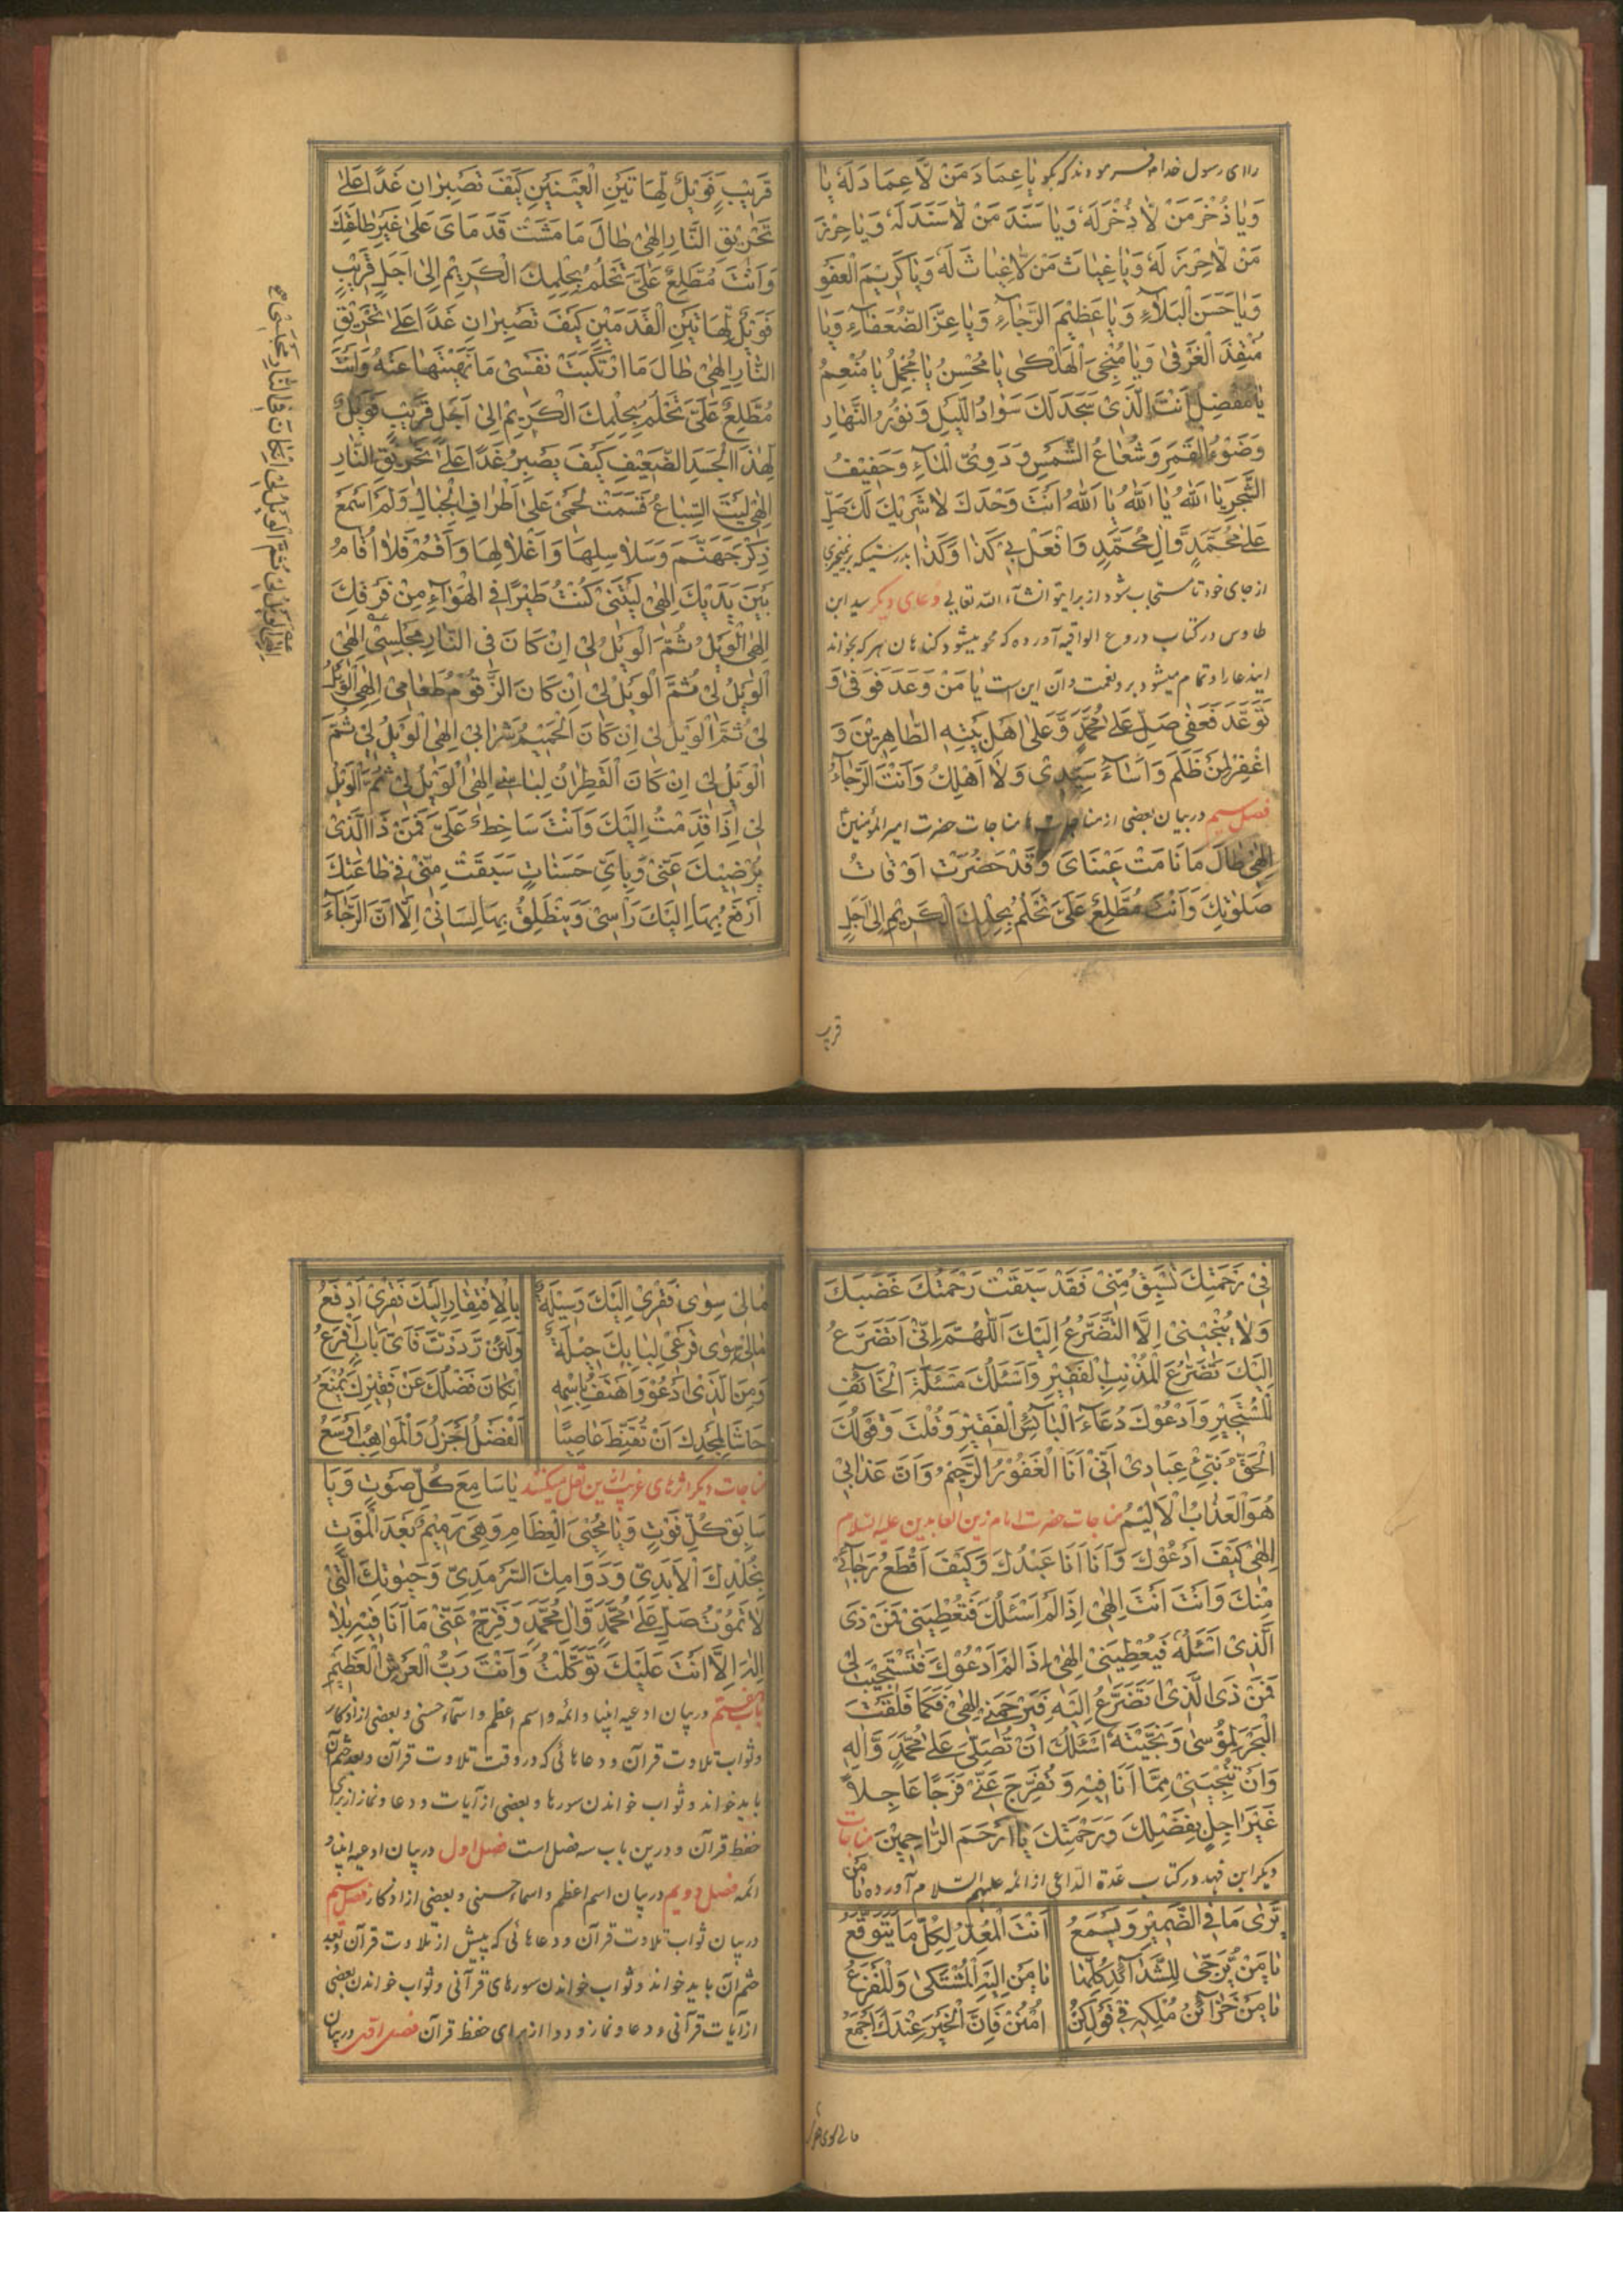 را ای رسول خدا م فرمودند که بگو يٰا عِمَادَ مَنْ لَّا عِمَادَ لَهٗ يٰا
وَيٰا ذُخْرَ مَنْ لَّا ذُخْرَ لَهٗ وَيٰا سَنَدَ مَنْ لَّا سَنَدَ لَهٗ وَيٰا حِرْزَ
مَنْ لَّا حِرْزَ لَهٗ وَيٰا غِيٰاثَ مَنْ لَّا غِيٰاثَ لَهٗ وَيٰا كَرِيْمَ الْعَفْوِ
وَيٰا حَسَنَ الْبَلَآءِ وَيٰا عَظِيْمَ الرَّجٰآءِ وَيٰا عِزَّ الضُّعَفٰآءِ وَيٰا
مُنْقِذَ الْغَرْقٰى وَيٰا مُنْجِيَ الْهَلْكٰى يٰا مُحْسِنُ يٰا مُجْمِلُ يٰا مُنْعِمُ
يٰا مُفْضِلُ اَنْتَ الَّذِىْ سَجَدَ لَكَ سَوٰادُ اللَّيْلِ وَنُوْرُ النَّهٰارِ
وَضَوْءُ الْقَمَرِ وَشُعٰاعُ الشَّمْسِ وَدَوِىُّ الْمٰآءِ وَحَفِيْفُ
الشَّجَرِ يٰا اَللّٰهُ يٰا اَللّٰهُ يٰا اَللّٰهُ اَنْتَ وَحْدَكَ لٰا شَرِيْكَ لَكَ صَلِّ
عَلٰى مُحَمَّدٍ وَّاٰلِ مُحَمَّدٍ وَافْعَلْ بِىْ كَذٰا وَكَذٰا بدرستيكه برنميخيزى
از جاى خود تا مستجاب شود از براى تو انشآء اللّه تعالى دعاى ديگر سيد ابن
طاوس در كتاب دروع الواقيه آورده كه محو ميشود كناهان هر كه بخواند
ايندعا را و تمام ميشود برو نعمت و آن اين است يٰا مَنْ وَعَدَ فَوَفٰى وَ
تَوَعَّدَ فَعَفٰى صَلِّ عَلٰى مُحَمَّدٍ وَّعَلٰى اَهْلِ بَيْتِهِ الطَّاهِرِيْنَ وَ
اغْفِرْ لِمَنْ ظَلَمَ وَاَسٰآءَ سَيِّدِىْ وَلٰا اَهْلِكُ وَاَنْتَ الرَّجٰآءُ
فصل سيم در بيان بعضى از مناجات ها مناجات حضرت امير المؤمنين
اِلٰهِىْ طٰالَ مٰا نٰامَتْ عَيْنٰاىَ وَقَدْ حَضَرَتْ اَوْقٰاتُ
صَلَوٰتِكَ وَاَنْتَ مُطَّلِعٌ عَلَىَّ تَحْلُمُ بِحِلْمِكَ الْكَرِيْمِ اِلٰى اَجَلٍ
قريب
قَرِيْبٍ فَوَيْلٌ لِّهٰاتَيْنِ الْعَيْنَيْنِ كَيْفَ تَصْبِرٰانِ غَدًا عَلٰى
تَحْرِيْقِ النَّارِ اِلٰهِىْ طٰالَ مٰا مَشَتْ قَدَمٰاىَ عَلٰى غَيْرِ طٰاعَتِكَ
وَاَنْتَ مُطَّلِعٌ عَلَىَّ تَحْلُمُ بِحِلْمِكَ الْكَرِيْمِ اِلٰى اَجَلٍ قَرِيْبٍ
فَوَيْلٌ لِّهٰاتَيْنِ الْقَدَمَيْنِ كَيْفَ تَصْبِرٰانِ غَدًا عَلٰى تَحْرِيْقِ
النَّارِ اِلٰهِىْ طٰالَ مَا ارْتَكَبَتْ نَفْسِىْ مٰا نَهَيْتَهٰا عَنْهُ وَاَنْتَ
مُطَّلِعٌ عَلَىَّ تَحْلُمُ بِحِلْمِكَ الْكَرِيْمِ اِلٰى اَجَلٍ قَرِيْبٍ فَوَيْلٌ
لِّهٰذَا الْجَسَدِ الضَّعِيْفِ كَيْفَ يَصْبِرُ غَدًا عَلٰى تَحْرِيْقِ النَّارِ
اِلٰهِىْ لَيْتَ السِّبٰاعُ قَسَمَتْ لَحْمِىْ عَلٰى اَطْرٰافِ الْجِبٰالِ وَلَمْ اَسْمَعْ
ذِكْرَ جَهَنَّمَ وَسَلٰاسِلِهٰا وَاَغْلٰالِهٰا وَاَقُمْ فَلٰا اُقٰامُ
بَيْنَ يَدَيْكَ اِلٰهِىْ لَيْتَنِىْ كُنْتُ طَيْرًا فِى الْهَوٰآءِ مِنْ فَرَقِكَ
اِلٰهِىْ اَلْوَيْلُ ثُمَّ الْوَيْلُ لِىْ اِنْ كٰانَ فِى النَّارِ مَجْلِسِىْ اِلٰهِىْ
اَلْوَيْلُ لِىْ ثُمَّ الْوَيْلُ لِىْ اِنْ كٰانَ الزَّقُّوْمُ طَعٰامِىْ اِلٰهِىْ اَلْوَيْلُ
لِىْ ثُمَّ الْوَيْلُ لِىْ اِنْ كٰانَ الْحَمِيْمُ شَرٰابِىْ اِلٰهِىْ اَلْوَيْلُ لِىْ ثُمَّ
الْوَيْلُ لِىْ اِنْ كٰانَ الْقَطِرٰانُ لِبٰاسِىْ اِلٰهِىْ اَلْوَيْلُ لِىْ ثُمَّ الْوَيْلُ
لِىْ اِذٰا قَدِمْتُ اِلَيْكَ وَاَنْتَ سٰاخِطٌ عَلَىَّ فَمَنْ ذَا الَّذِىْ
يُرْضِيْكَ عَنِّىْ وَبِاَىِّ حَسَنٰاتٍ سَبَقَتْ مِنِّىْ فِىْ طٰاعَتِكَ
اَرْفَعُ بِهٰا اِلَيْكَ رَاْسِىْ وَيَنْطَلِقُ بِهٰا لِسٰانِىْ اِلَّا اَنَّ الرَّجٰآءَ
اِلٰهِىْ اَلْوَيْلُ لِىْ ثُمَّ الْوَيْلُ لِىْ اِنْ كٰانَ فِى النَّارِ مَجْلِسِىْ
فِىْ رَحْمَتِكَ تَسْبِقُ مِنِّىْ فَقَدْ سَبَقَتْ رَحْمَتُكَ غَضَبَكَ
وَلٰا يُنْجِيْنِىْ اِلَّا التَّضَرُّعُ اِلَيْكَ اَللّٰهُمَّ اِنِّىْ اَتَضَرَّعُ
اِلَيْكَ تَضَرُّعَ الْمُذْنِبِ الْفَقِيْرِ وَاَسْئَلُكَ مَسْئَلَةَ الْخٰآئِفِ
الْمُسْتَجِيْرِ وَاَدْعُوْكَ دُعٰآءَ الْبٰآئِسِ الْفَقِيْرِ وَقُلْتَ وَقَوْلُكَ
الْحَقُّ نَبِّئْ عِبٰادِىْ اَنِّىْ اَنَا الْغَفُوْرُ الرَّحِيْمُ وَاَنَّ عَذٰابِىْ
هُوَ الْعَذٰابُ الْاَلِيْمُ مناجات حضرت امام زين العابدين عليه السلام
اِلٰهِىْ كَيْفَ اَدْعُوْكَ وَاَنٰا اَنٰا عَبْدُكَ وَكَيْفَ اَقْطَعُ رَجٰآئِىْ
مِنْكَ وَاَنْتَ اَنْتَ اِلٰهِىْ اِذٰا لَمْ اَسْئَلْكَ فَتُعْطِيَنِىْ فَمَنْ ذَى
الَّذِىْ اَسْئَلُهٗ فَيُعْطِيَنِىْ اِلٰهِىْ اِذٰا لَمْ اَدْعُوْكَ فَتَسْتَجِيْبَ لِىْ
فَمَنْ ذَى الَّذِىْ اَتَضَرَّعُ اِلَيْهِ فَيَرْحَمَنِىْ اِلٰهِىْ فَكَمٰا فَلَقْتَ
الْبَحْرَ لِمُوْسٰى وَنَجَّيْتَهٗ اَسْئَلُكَ اَنْ تُصَلِّىَ عَلٰى مُحَمَّدٍ وَّاٰلِهٖ
وَاَنْ تُنْجِيَنِىْ مِمَّا اَنَا فِيْهِ وَتُفَرِّجَ عَنِّىْ فَرَجًا عٰاجِلًا
غَيْرَ اٰجِلٍ بِفَضْلِكَ وَرَحْمَتِكَ يٰا اَرْحَمَ الرّٰاحِمِيْنَ مناجات
ديگر ابن فهد در كتاب عدة الداعى از ائمه عليهم السلام آورده يٰا مَنْ
يَّرٰى مٰا فِى الضَّمِيْرِ وَيَسْمَعُ اَنْتَ الْمُعِدُّ لِكُلِّ مٰا يُتَوَقَّعُ
يٰا مَنْ يُّرَجّٰى لِلشَّدٰآئِدِ كُلِّهٰا يٰا مَنْ اِلَيْهِ الْمُشْتَكٰى وَالْمَفْزَعُ
يٰا مَنْ خَزٰآئِنُ مُلْكِهٖ فِىْ قَوْلِ كُنْ اُمْنُنْ فَاِنَّ الْخَيْرَ عِنْدَكَ اَجْمَعُ
مالى سوى فقرى
مٰا لِىْ سِوٰى فَقْرِىْ اِلَيْكَ وَسِيْلَةٌ بِالْاِفْتِقٰارِ اِلَيْكَ فَقْرِىْ اَدْفَعُ
مٰا لِىْ سِوٰى قَرْعِىْ لِبٰابِكَ حِيْلَةٌ وَلَئِنْ رَّدَدْتَّ فَاَىَّ بٰابٍ اَقْرَعُ
وَمَنِ الَّذِىْ اَدْعُوْ وَاَهْتِفُ بِاسْمِهٖ اِنْ كٰانَ فَضْلُكَ عَنْ فَقِيْرِكَ يُمْنَعُ
حٰاشٰا لِمَجْدِكَ اَنْ تُقَنِّطَ عٰاصِيًا اَلْفَضْلُ اَجْزَلُ وَالْمَوٰاهِبُ اَوْسَعُ
مناجات ديگر نقل ميكنند يٰا سٰامِعَ كُلِّ صَوْتٍ وَيٰا
سٰابِقَ كُلِّ فَوْتٍ وَيٰا مُحْيِىَ الْعِظٰامِ وَهِىَ رَمِيْمٌ بَعْدَ الْمَوْتِ
بِخُلْدِكَ الْاَبَدِىِّ وَدَوٰامِكَ السَّرْمَدِىِّ وَحَيٰوتِكَ الَّتِىْ
لٰا تَمُوْتُ صَلِّ عَلٰى مُحَمَّدٍ وَّاٰلِ مُحَمَّدٍ وَفَرِّجْ عَنِّىْ مٰا اَنَا فِيْهِ بِلٰا
اِلٰهَ اِلَّا اَنْتَ عَلَيْكَ تَوَكَّلْتُ وَاَنْتَ رَبُّ الْعَرْشِ الْعَظِيْمِ
باب هفتم در بيان ادعيه انبيا و ائمه و اسم اعظم و اسمآء حسنى و بعضى از اذكار
و ثواب تلاوت قرآن و دعاهائى كه در وقت تلاوت قرآن و بعد ختم آن
بايد خواند و ثواب خواندن سورها و بعضى از آيات و دعا و نماز از براى
حفظ قرآن و درين باب سه فصل است فصل اول در بيان ادعيه انبيا و
ائمه فصل دويم در بيان اسم اعظم و اسماء حسنى و بعضى از اذكار فصل سيم
در بيان ثواب تلاوت قرآن و دعاهائى كه پيش از تلاوت قرآن و بعد
ختم آن بايد خواند و ثواب خواندن سورهاى قرآنى و ثواب خواندن بعضى
از آيات قرآنى و دعا و نماز و دوا از براى حفظ قرآن فصل اول در بيان